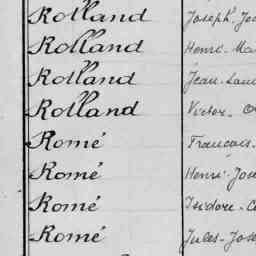 Rolland Joseph
Rolland Henri
Rolland Jean
Rolland Victor
Romé Francois
Romé Henri
Romé Isidore
Romé Jules